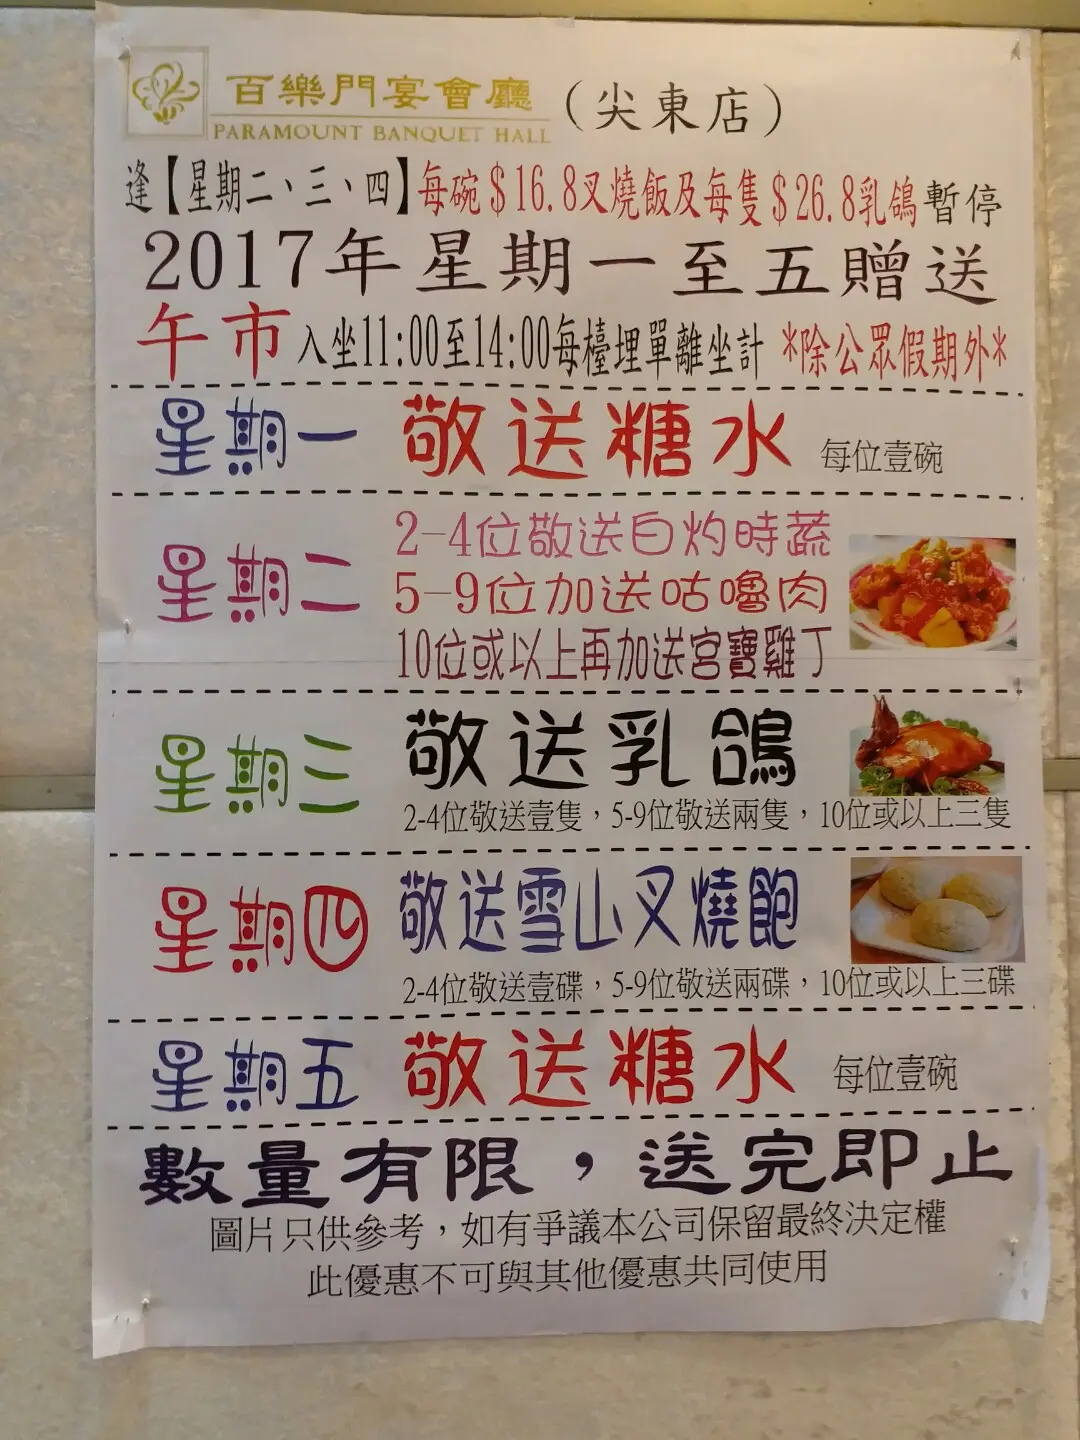 百樂門宴會廳（尖東店）
PARAMOUNT BANQUET HALL
逢【星期二、三、四】每碗$16.8叉燒飯及每隻$26.8乳鴿暫停
2017年星期一至五贈送
午市入坐11:00至14:00每檯埋單離坐計 *除公眾假期外*
星期一 敬送糖水 每位壹碗
星期二
2-4位敬送白灼時蔬
5-9位加送咕嚕肉
10位或以上再加送宮寶雞丁
星期三 敬送乳鴿
2-4位敬送壹隻，5-9位敬送兩隻，10位或以上三隻
星期四 敬送雪山叉燒飽
2-4位敬送壹碟，5-9位敬送兩碟，10位或以上三碟
星期五 敬送糖水 每位壹碗
數量有限，送完即止
圖片只供參考，如有爭議本公司保留最終決定權
此優惠不可與其他優惠共同使用